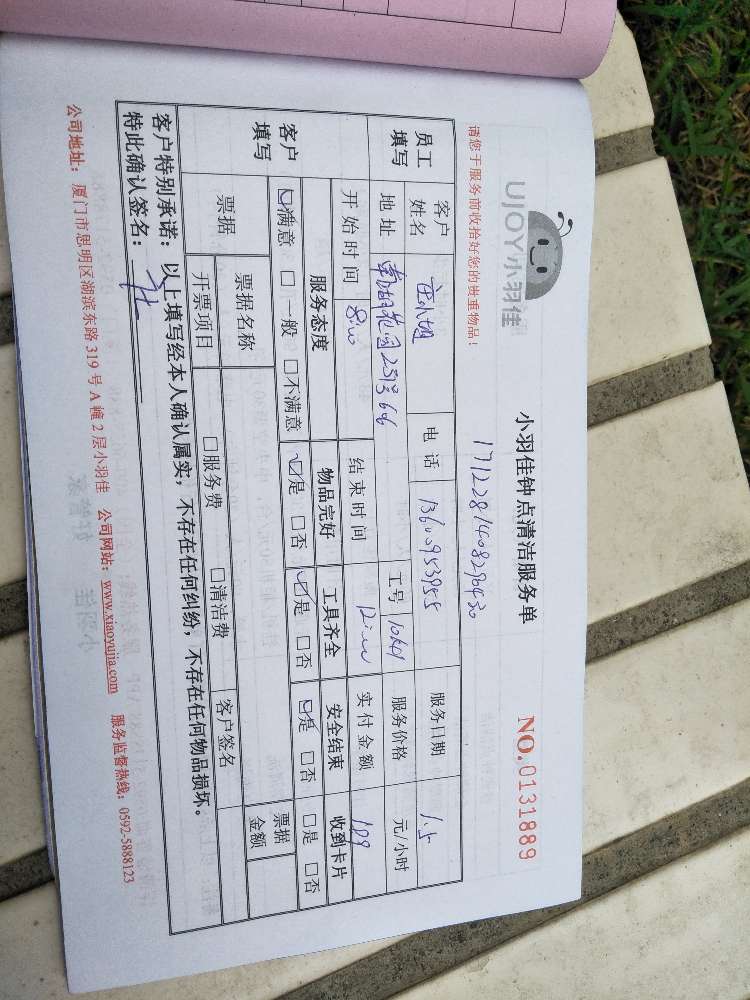 UJOY小羽佳
小羽佳钟点清洁服务单
NO.0131889
请您于服务前收拾好您的贵重物品！
1712281408290430
员工填写 客户姓名 电话 13600953955 服务日期 1.5
地址 南湖花园251366 工号 服务价格 元/小时
开始时间 8:00 结束时间 12:00 实付金额 199
客户填写 服务态度 物品完好 工具齐全 安全结束 收到卡片
☑满意 □一般 □不满意 ☑是 □否 ☑是 □否 ☑是 □否 □是 □否
票据 票据名称 票据金额
开票项目 □服务费 □清洁费 客户签名
客户特别承诺：以上填写经本人确认属实，不存在任何纠纷，不存在任何物品损坏。
特此确认签名：
公司地址：厦门市思明区湖滨东路319号A幢2层小羽佳 公司网站：www.xiaoyujia.com 服务监督热线：0592-5888123